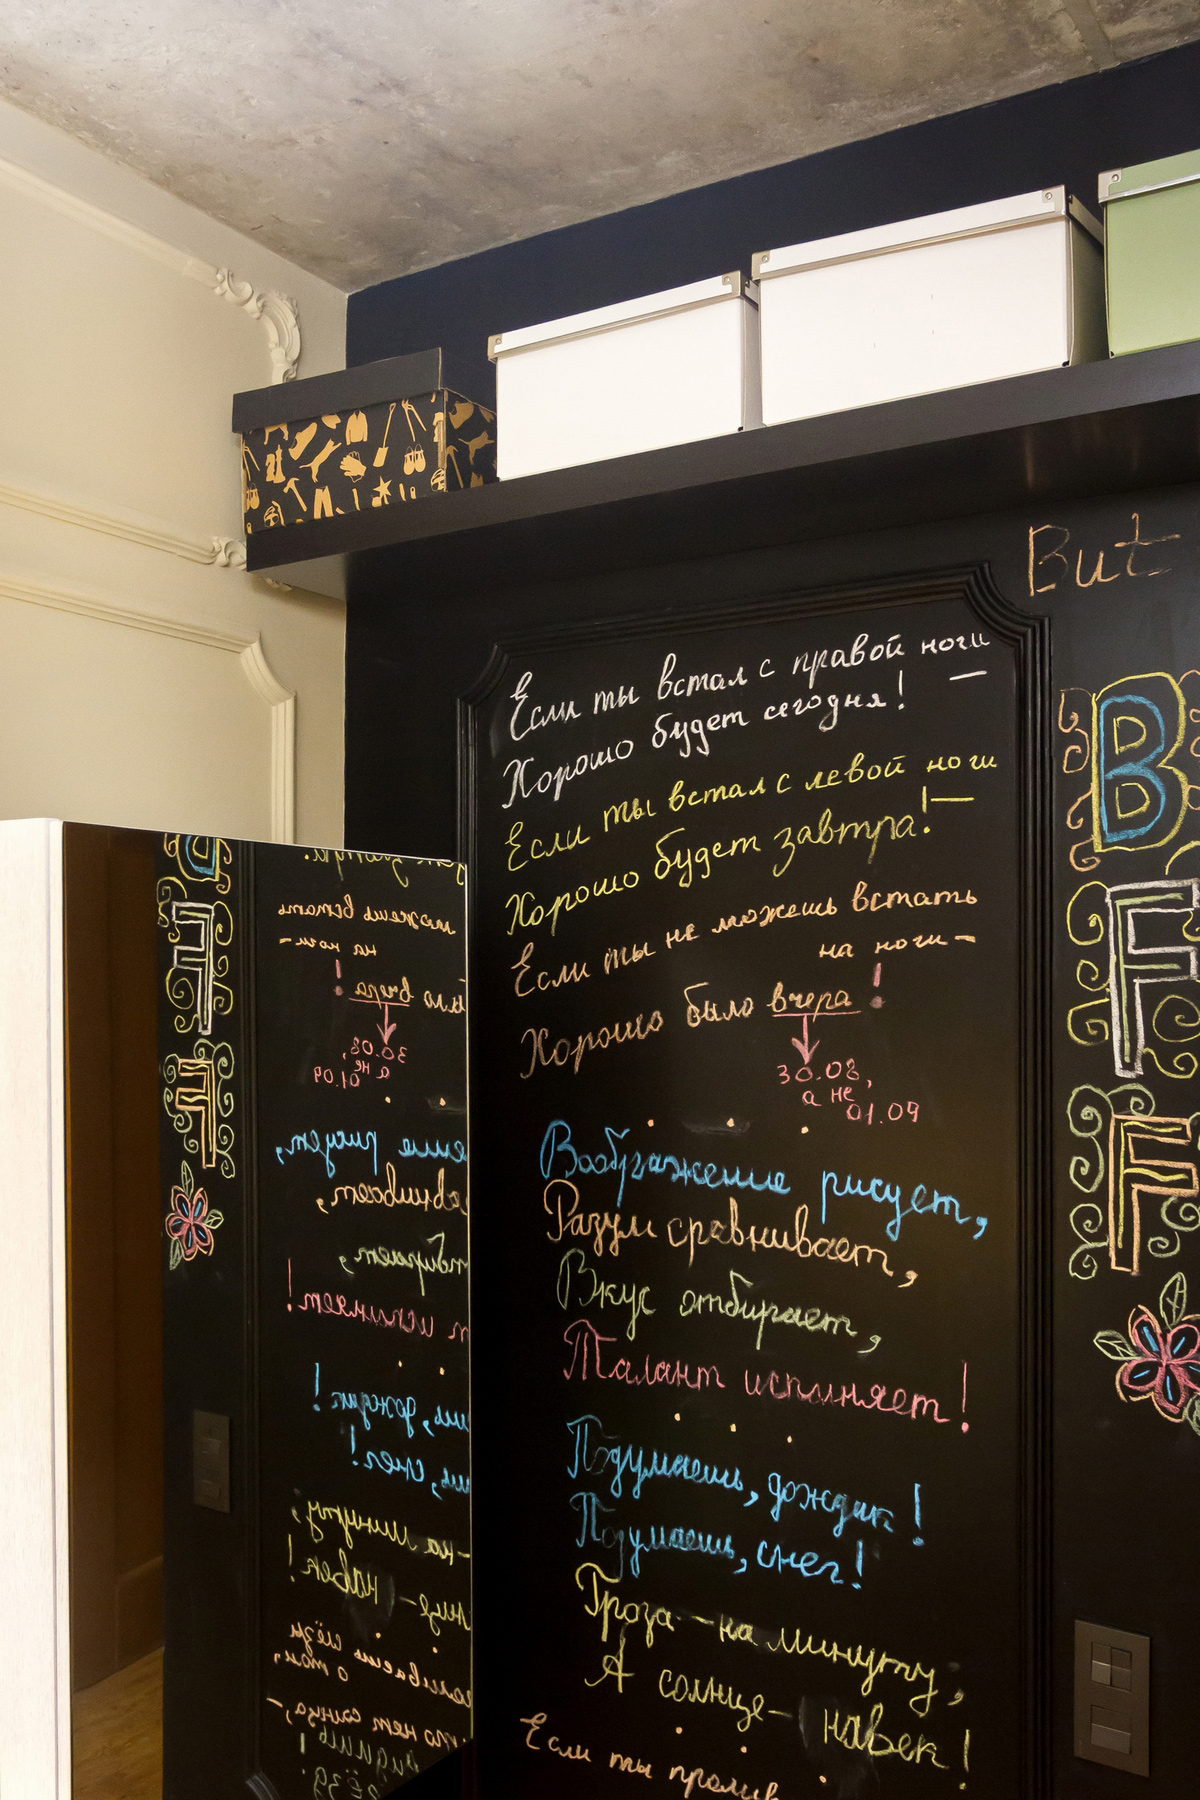 But
Если ты встал с правой ноги —
Хорошо будет сегодня!
Если ты встал с левой ноги —
Хорошо будет завтра!
Если ты не можешь встать
на ноги —
Хорошо было вчера!
30.08,
а не
01.09
Воображение рисует,
Разум сравнивает,
Вкус отбирает,
Талант исполняет!
Подумаешь, дождик!
Подумаешь, снег!
Гроза - на минуту,
А солнце - навек!
Если ты пролив
B
F
F